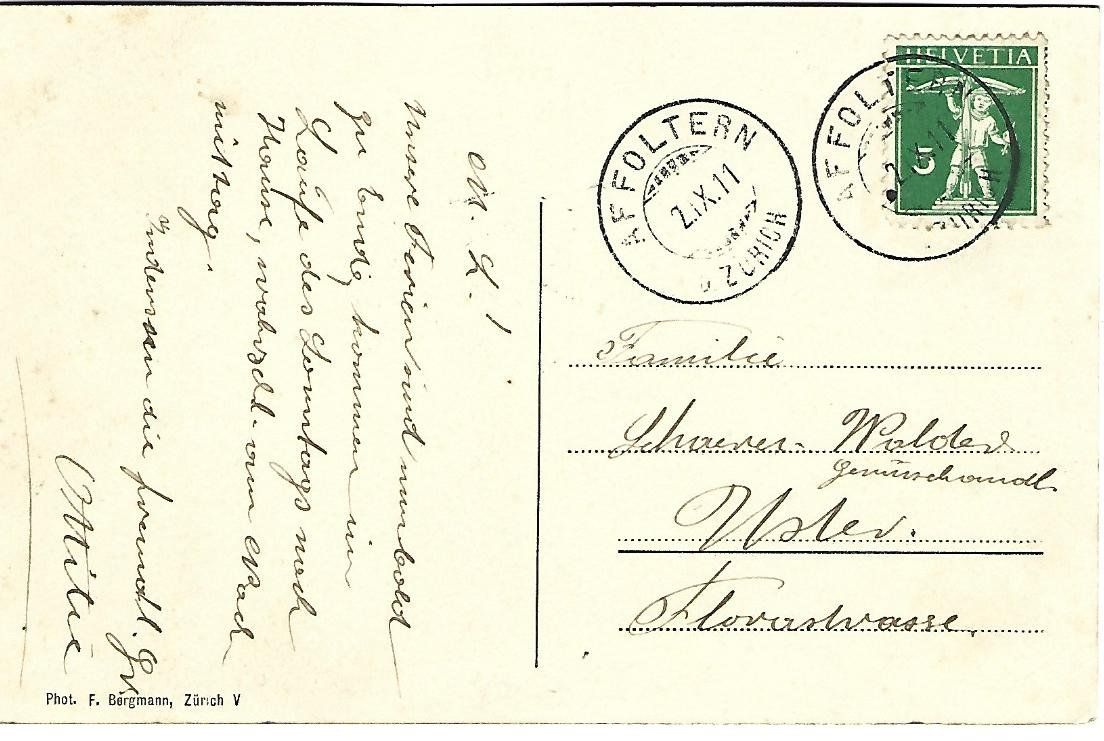 M. L.!
Unsere Ferien sind nun bald
zu Endig kommen im
Laufe des Sonntags nach
Hause, wahrschl. am Nach
mittag.
Indessen die freundl. Gr.
HELVETIA
5
AFFOLTERN
2.IX.11
b. ZÜRICH
AFFOLTERN
2.IX.11
ZÜRICH
Familie
Walder
Gemüsehandl.
Uster.
Florastrasse.
Phot. F. Bergmann, Zürich V